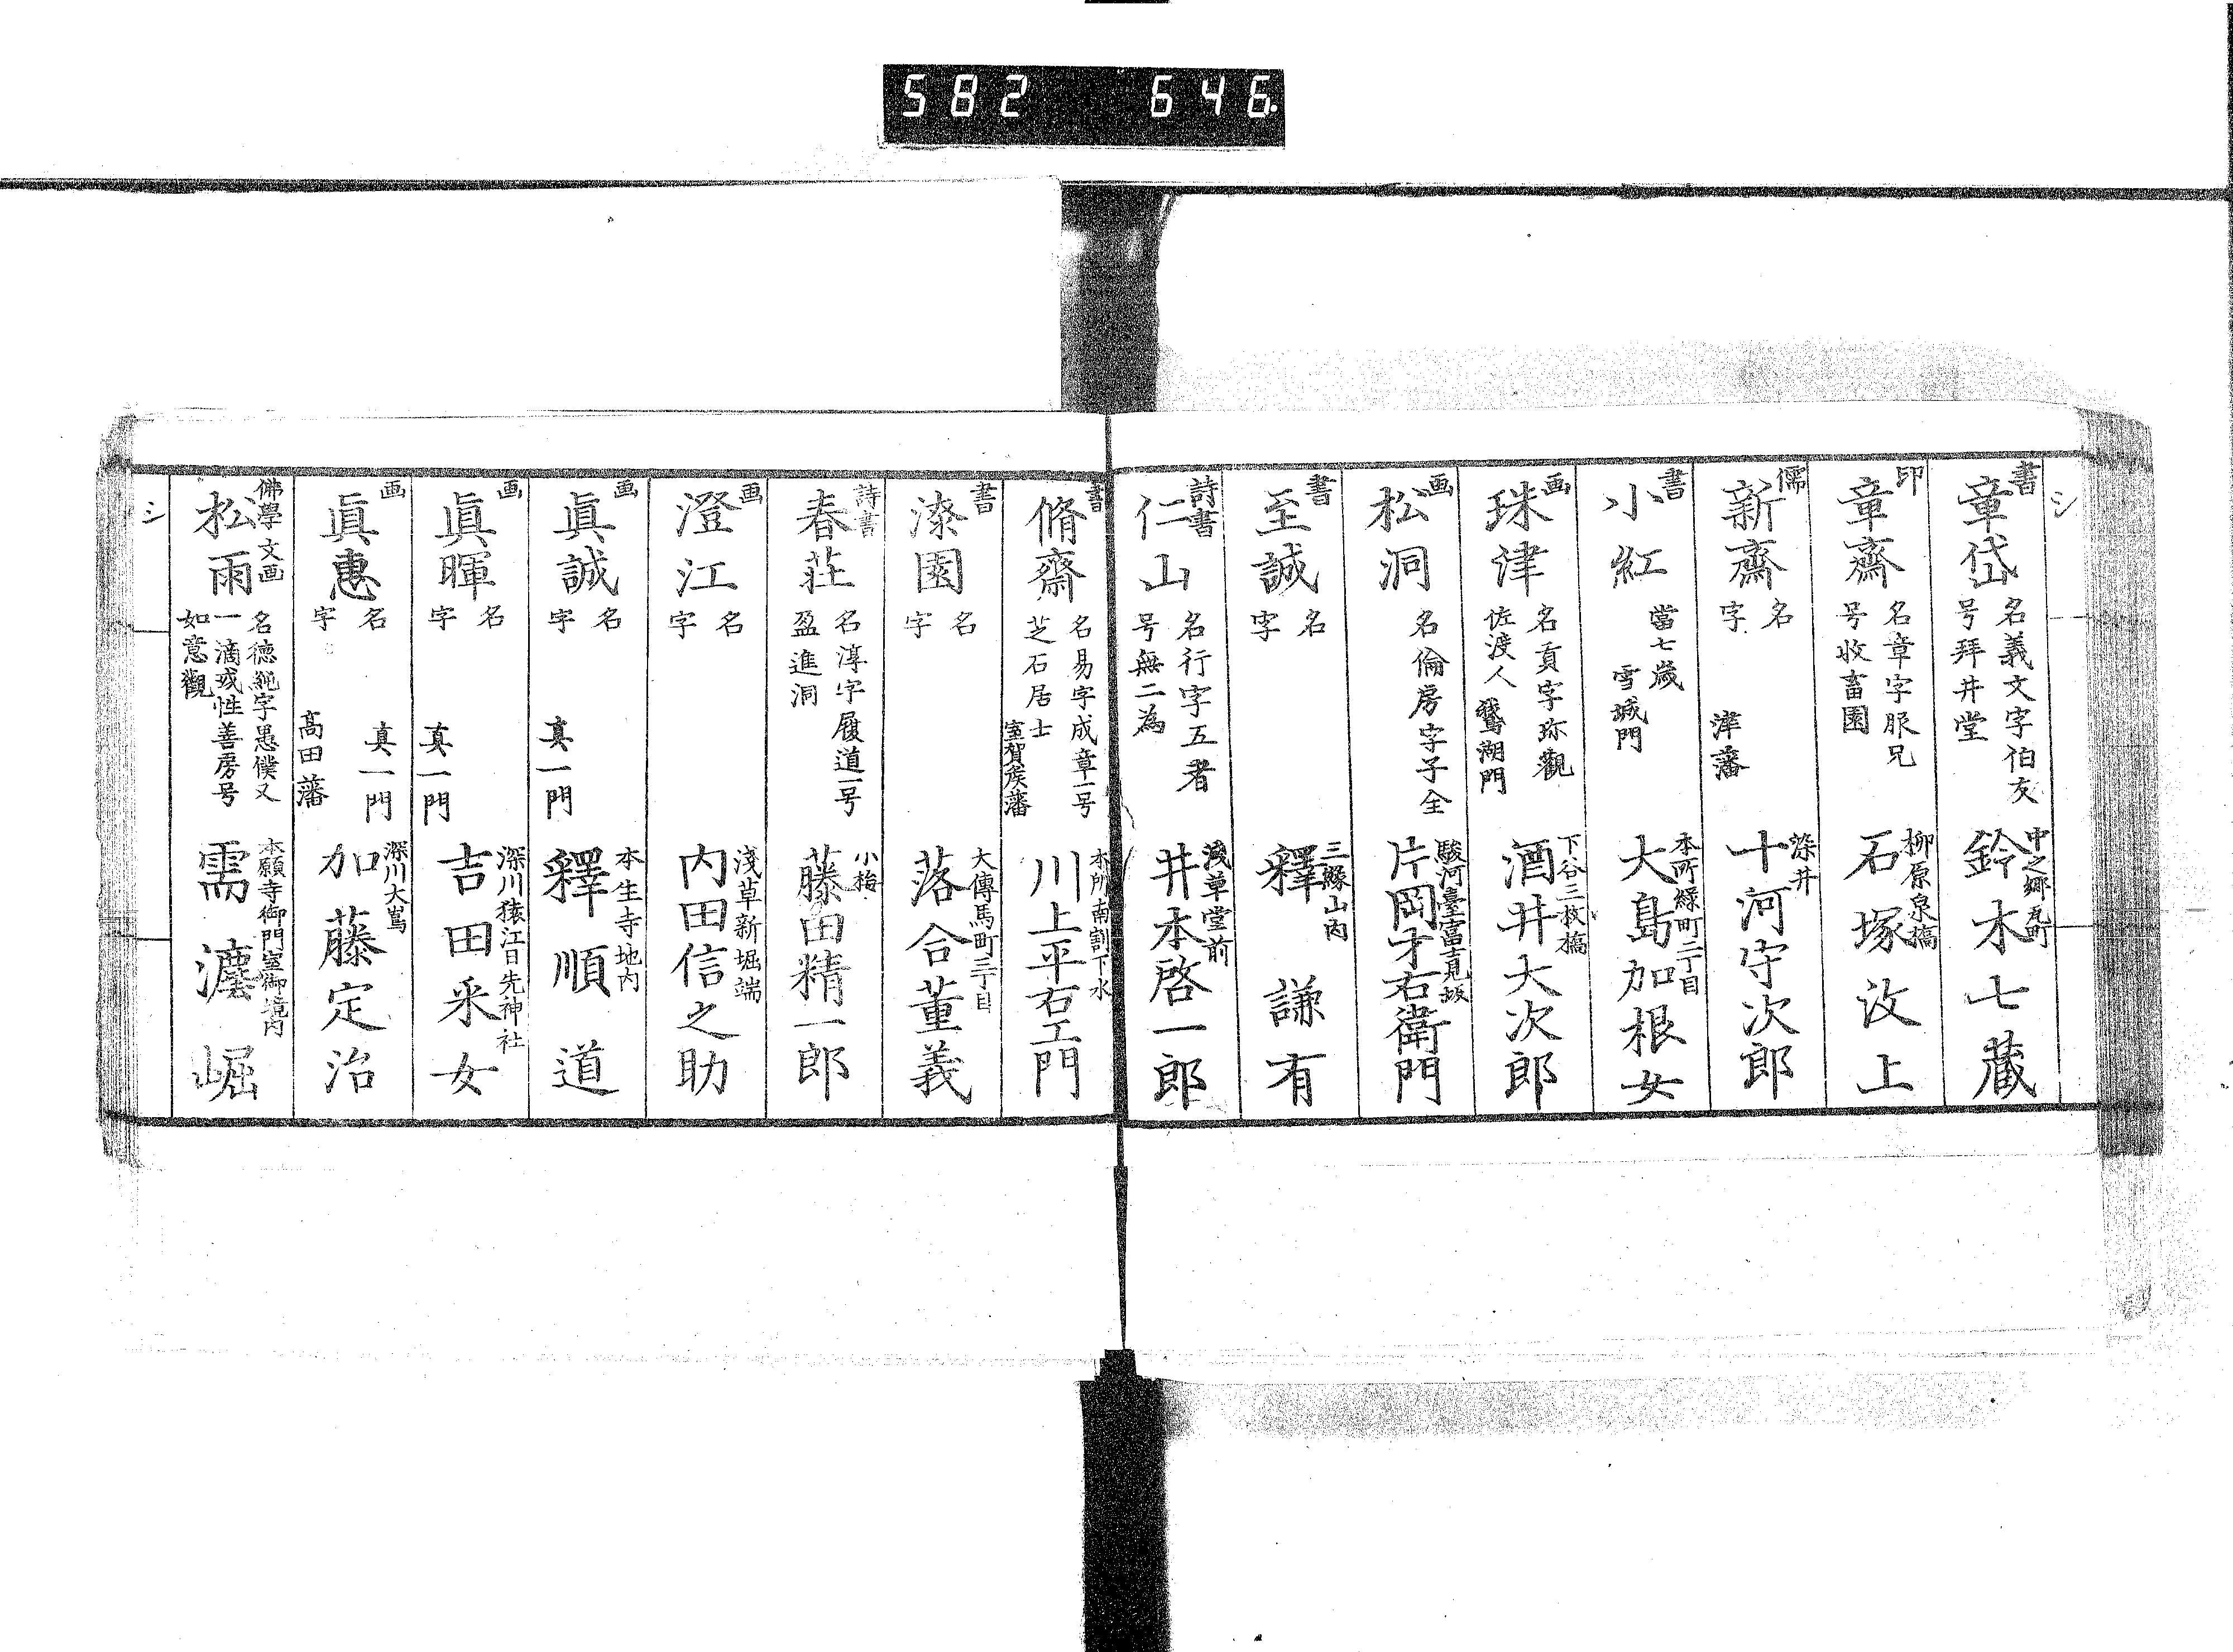 582 646.
シ
書
章岱
名義文字伯友
号拜井堂
中之郷瓦町
鈴木七藏
印
章齋
名章字服兄
号收畜園
柳原泉橋
石塚汶上
儒
新齋
名
字
津藩
染井
十河守次郎
書
小紅
當七歲
雪城門
本所緑町二丁目
大島加根女
画
珠津
名貢字珎觀
佐渡人
鵞湖門
下谷三枚橋
酒井大次郎
画
松洞
名倫房字子全
駿河臺富士見坂
片岡才右衛門
書
至誠
名
字
三縁山内
釋謙有
詩書
仁山
名行字五者
号無二為
淺草堂前
井本啓一郎
書
脩齋
名易字成章一号
芝石居士
室賀矦藩
本所南割下水
川上平右エ門
書
漆園
名
字
大傳馬町三丁目
落合董義
詩書
春莊
名淳字履道一号
盈進洞
小梅
藤田精一郎
画
澄江
名
字
淺草新堀端
内田信之助
画
眞誠
名
字
真一門
本生寺地内
釋順道
画
眞暉
名
字
真一門
深川猿江日先神社
吉田采女
画
眞惠
名
字
真一門
高田藩
深川大嶌
加藤定治
佛學文画
松雨
名德純字愚僕又
一滴或性善房号
如意觀
本願寺御門室御境内
霈崛
シ